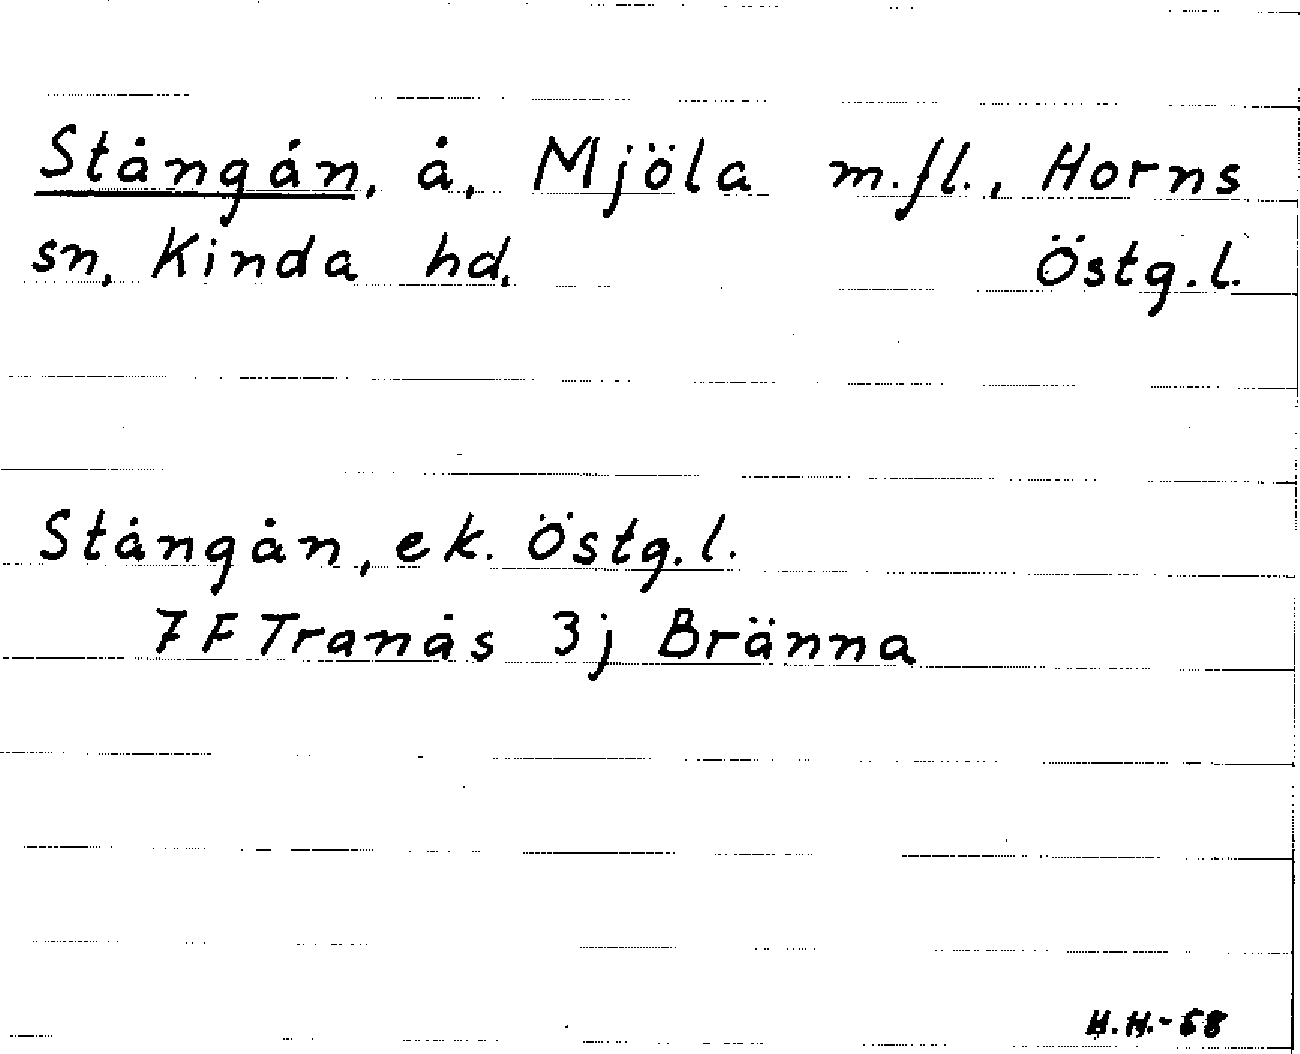 Stångån, å, Mjöla m.fl., Horns
sn, Kinda hd, Östg.l.
Stångån, ek. Östg.l.
7F Tranås 3j Bränna
H.H.-68